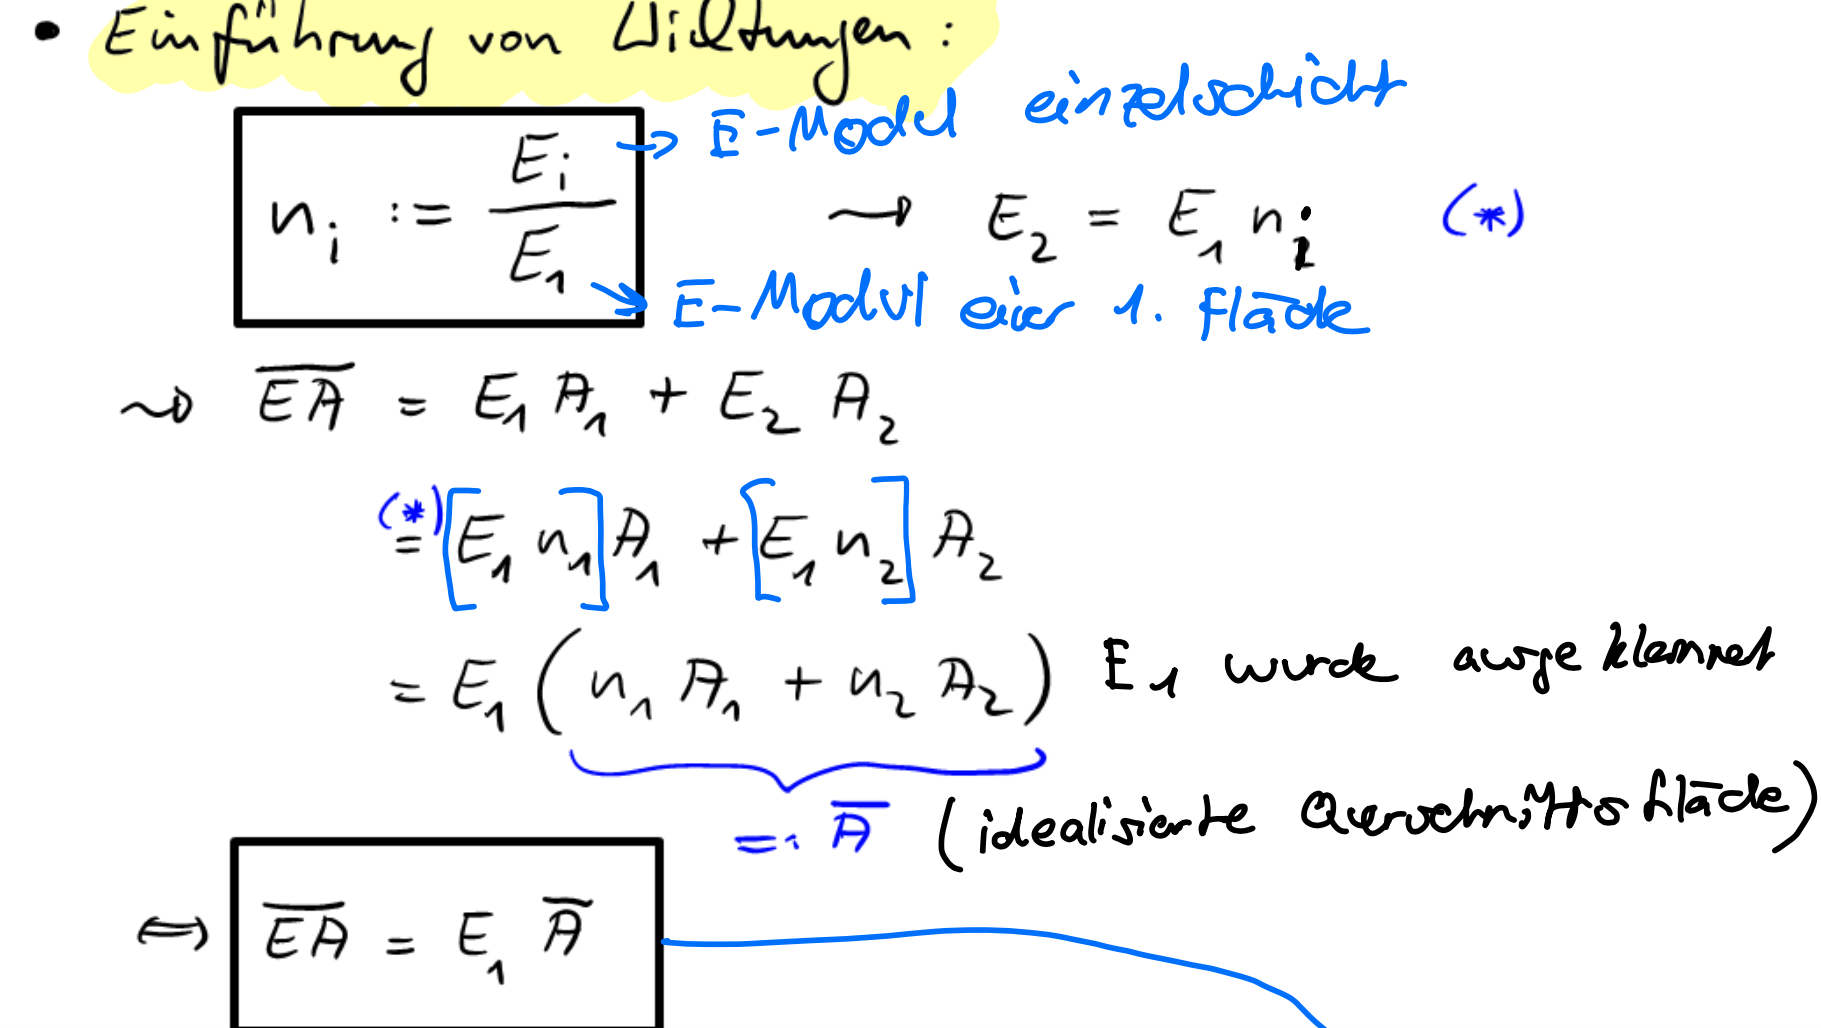 • Einführung von Wichtungen:
n_i := E_i / E_1 → E-Modul einzelschicht
⇝ E_2 = E_1 n_i (*)
→ E-Modul einer 1. Fläche
⇝ \overline{EA} = E_1 A_1 + E_2 A_2
(*) = [E_1 n_1] A_1 + [E_1 n_2] A_2
= E_1 (n_1 A_1 + n_2 A_2) E_1 wurde ausgeklammert
=: \overline{A} (idealisierte Querschnittsfläche)
⇔ \overline{EA} = E_1 \overline{A}